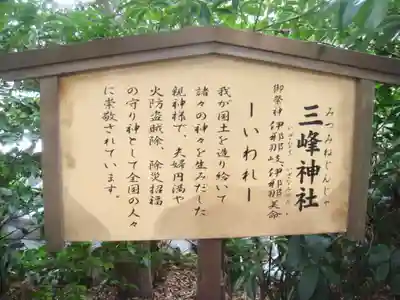 みつみねじんじゃ
三峰神社
御祭神 伊耶那岐、伊耶那美命
ーいわれー
我が国土を造り給いて
諸々の神々を生みだした
親神様で、夫婦円満や
火防盗賊除、除災招福
の守り神として全国の人々
に崇敬されています。